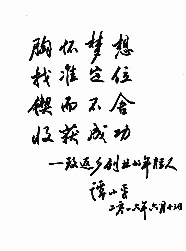 胸怀梦想
找准定位
锲而不舍
收获成功
—致返乡创业的年轻人
二〇一六年六月十二日